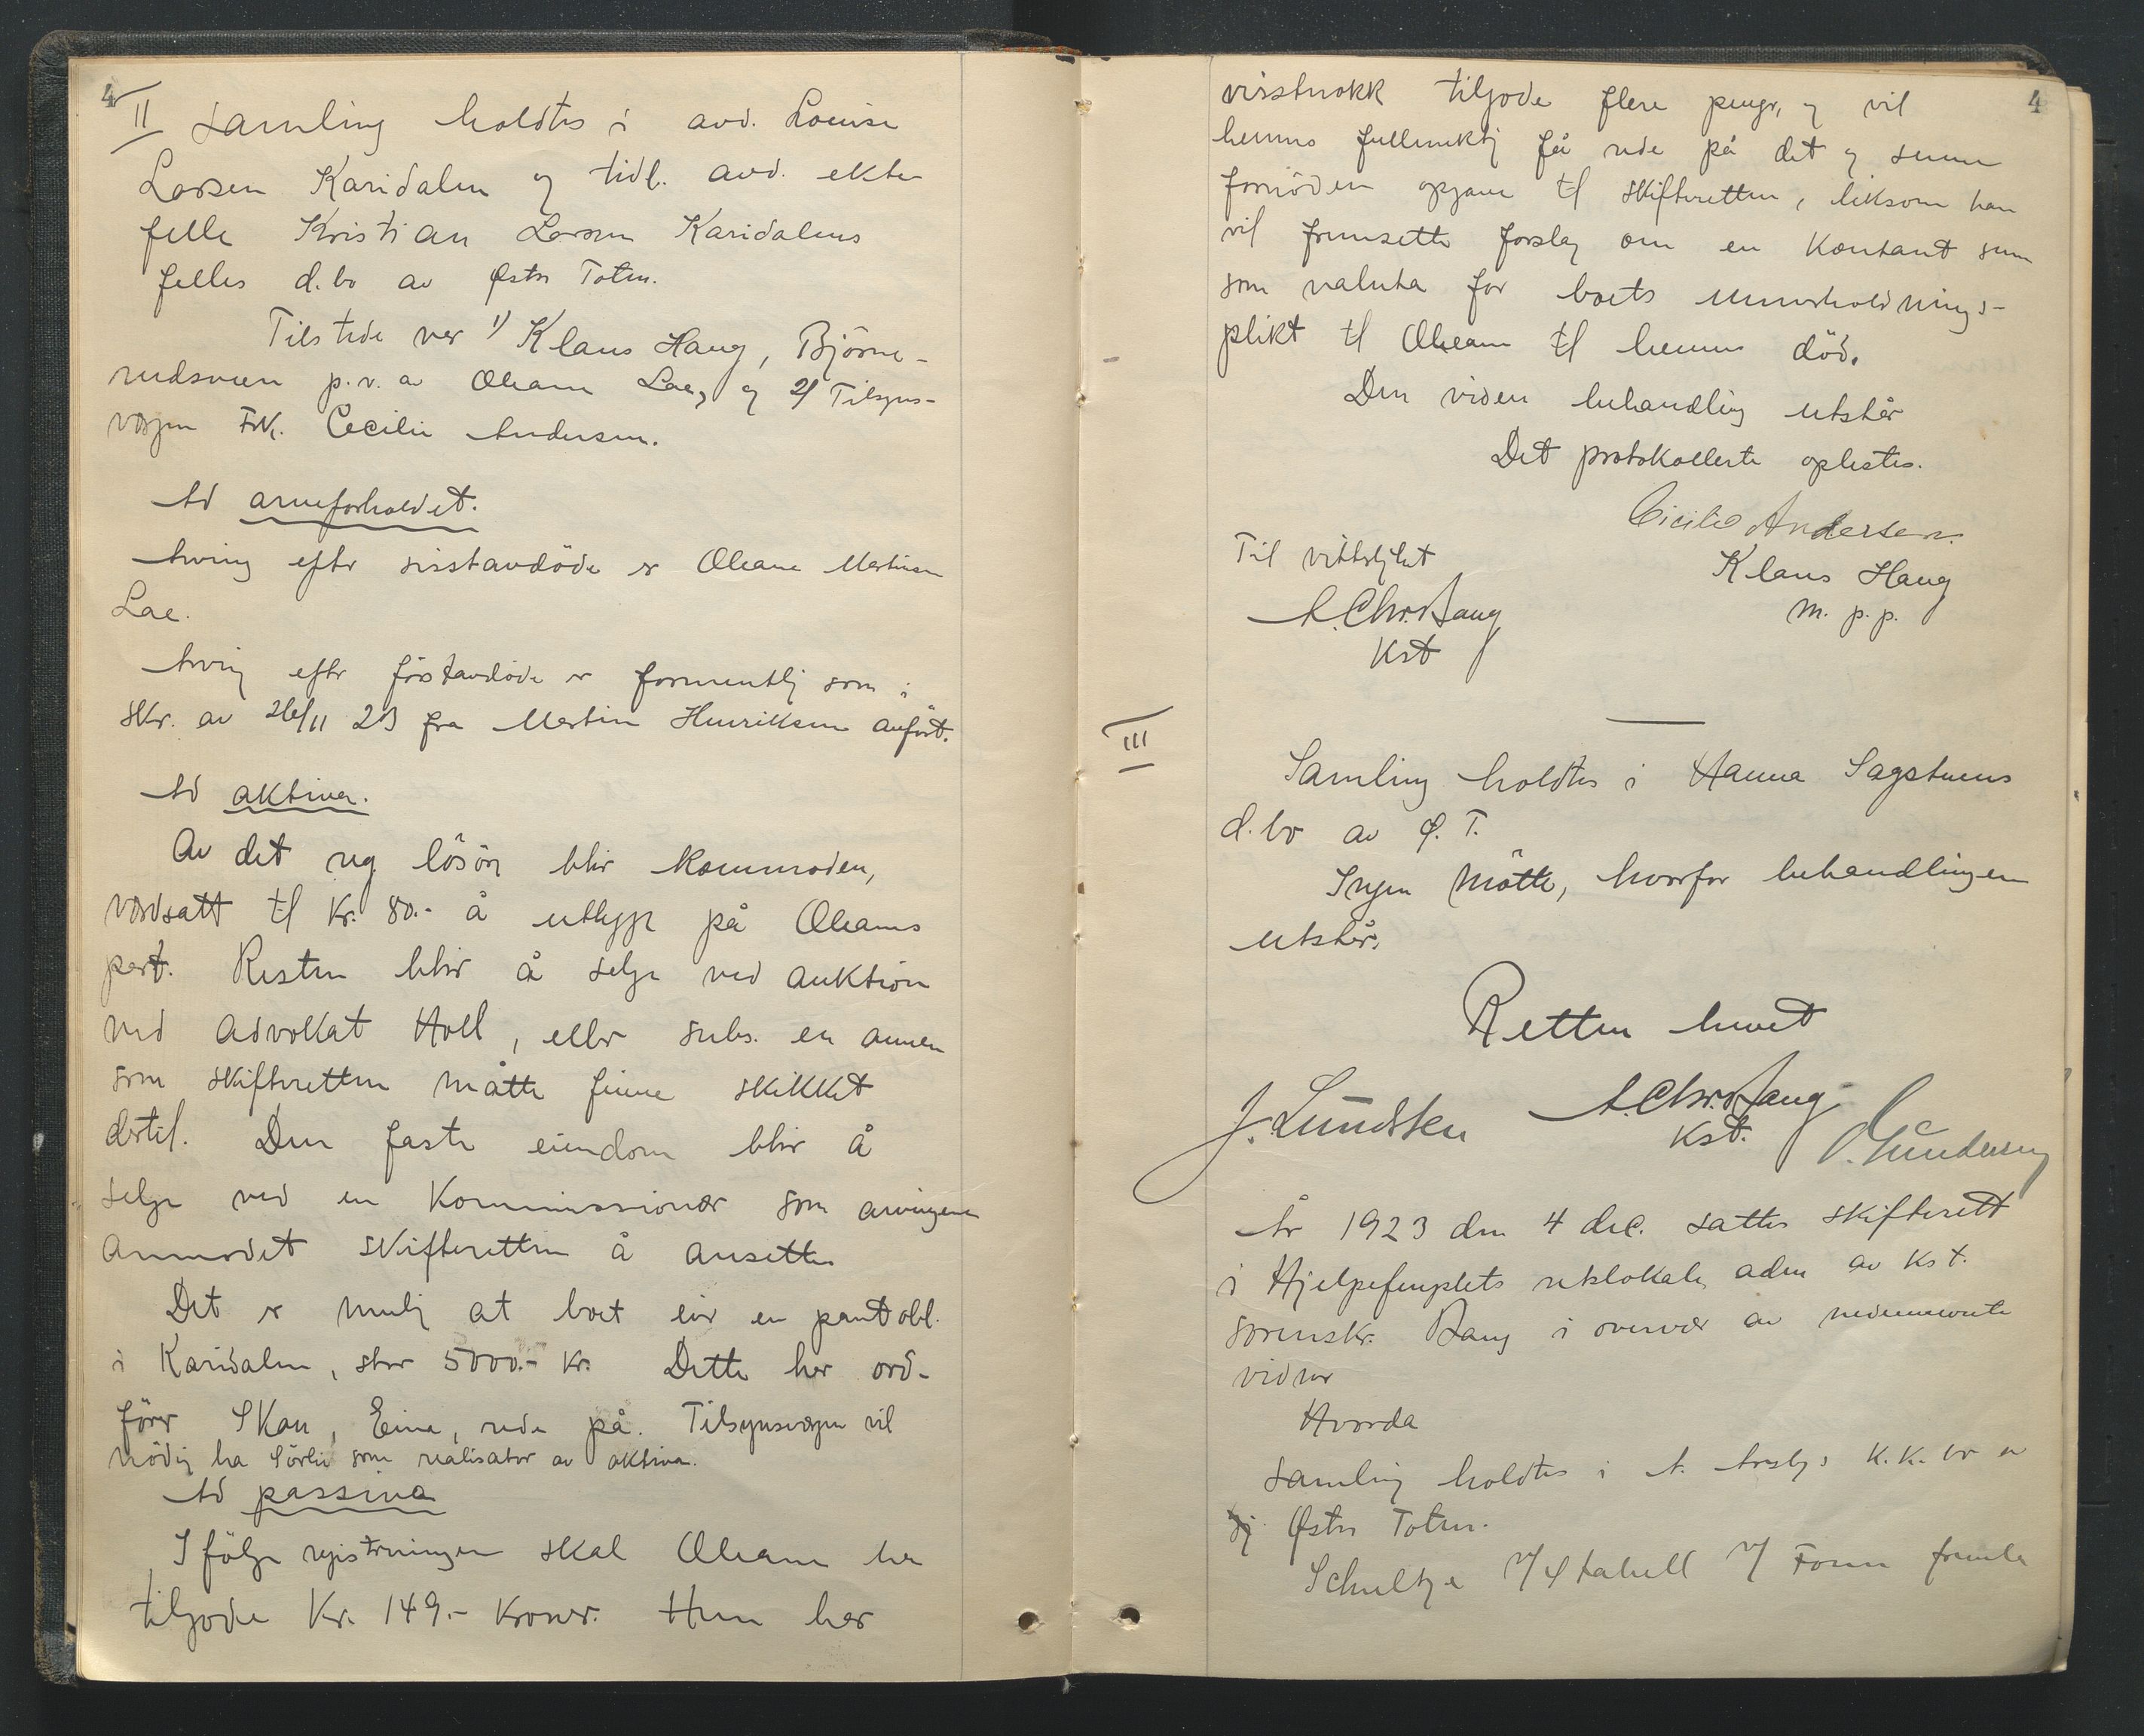 4
II samling holdtes i avd. Louise
Larsen Karidalen og tidl. avd. ekte
felle Kristian Larsen Karidalens
felles d.bo av Østre Toten.
Tilstede var 1) Klaus Haug, Björne-
rudsveen p.v. a Oleane Lae, og 2) Tilsyns-
vergen Frk. Cecilie Andersen.
Ad arveforholdet.
Arving efter sisstavdöde er Oleane Martinsen
Lae.
Arving efter förstavdöde er formentlig som i
skr. av 26/11 23 fra Martin Henriksen anfört.
Ad aktiva.
Av det reg. lösöre blir kommoden,
verdsatt til kr. 80.- å utlegge på Oleanes
part. Resten blir å selge ved auktion
ved advokat Holl, eller subs. en annen
som skifteretten måtte finne skikket
dertil. Den faste eiendom blir å
selge ved en kommissionær som arvingene
anmodet skifteretten å ansette.
Det er mulig at boet eier en pantobl.
i Karidalen, stor 5000.- kr. Dette har ord-
förer Skau, Eina, rede på. Tilsynsvergen vil
nödig ha Sörlie som realisator av aktiva.
Ad passiva
Ifölge registreringen skal Oleane ha
tilgode kr. 149.- kroner. Hun har
4
visstnokk tilgode flere penger, og vil
hennes fullmektig få rede på det og senere
fornöden opgave til skifteretten, liksom han
vil fremsette forslag om en kontant sum
som valuta for boets underholdnings-
plikt til Oleane til hennes död.
Den videre behandling utstår
Det protokollerte oplestes.
Cicilie Andersen.
Til vitterlighet
Klaus Haug
A.Chr.Bang
m. p. p.
kst
III
Samling holdtes i Hanna Sagstuens
d.bo av Ø. T.
Ingen mötte, hvorfor behandlingen
utstår.
Retten hevet
J. Lundsten A.Chr.Bang O. Gundersen
kst.
År 1923 den 4 dec. sattes skifterett
i Hjelpefengslets rettslokale, adm av kst.
sorenskr. Bang i overvær av nedennevnte
vidner
Hvorda
samling holdtes i A. k.k. bo av
Østre Toten.
Schultze v/ v/ Fonn fremla